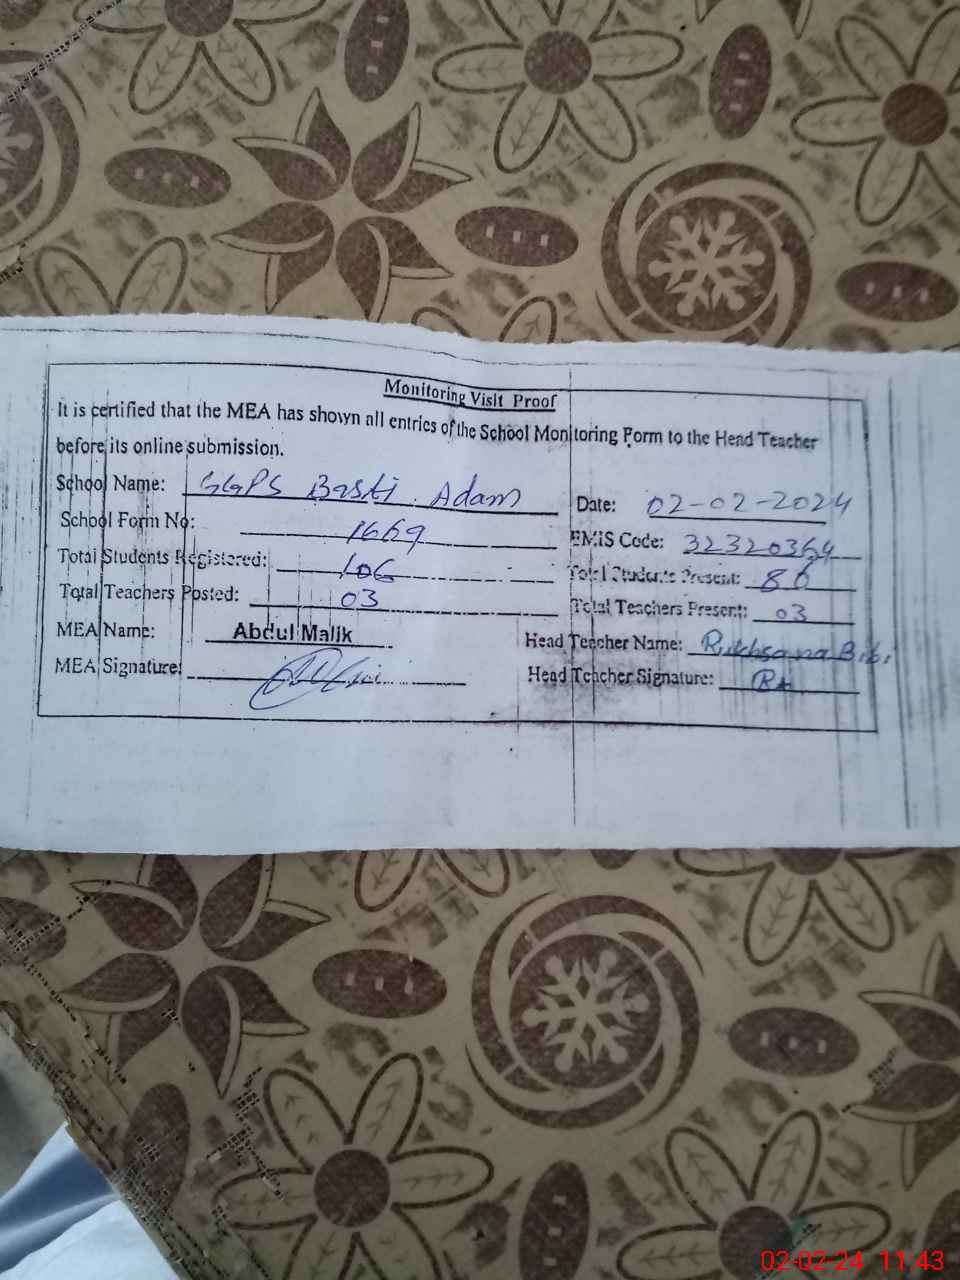 Monitoring Visit Proof
It is certified that the MEA has shown all entries of the School Monitoring Form to the Head Teacher
before its online submission.
School Name: GGPS Basti Adam Date: 02-02-2024
School Form No: 1669 EMIS Code: 32320364
Total Students Registered: 106 Total Students Present: 86
Total Teachers Posted: 03 Total Teachers Present: 03
MEA Name: Abdul Malik Head Teacher Name: Rukhsana Bibi
MEA Signature: Head Teacher Signature:
02-02-24 11:43